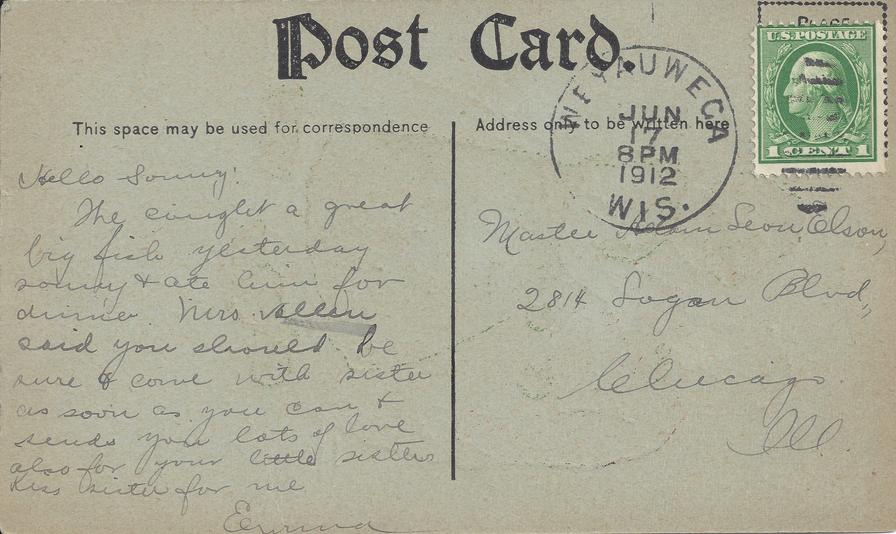 Post Card.
PLACE
U.S. POSTAGE
1 CENT 1
WEYAUWEGA
JUN
17
8 PM
1912
WIS.
This space may be used for correspondence
Address only to be written here
Hello Sonny!
The cought a great
big fish yesterday
sonny & ate him for
dinner Mrs. Allen
said you should be
sure & come with sister
as soon as you can &
sends you lots of love
also for your little sister
Kiss sister for me
Master Leon Olson,
2814 Logan Blvd,
Chicago
Ill